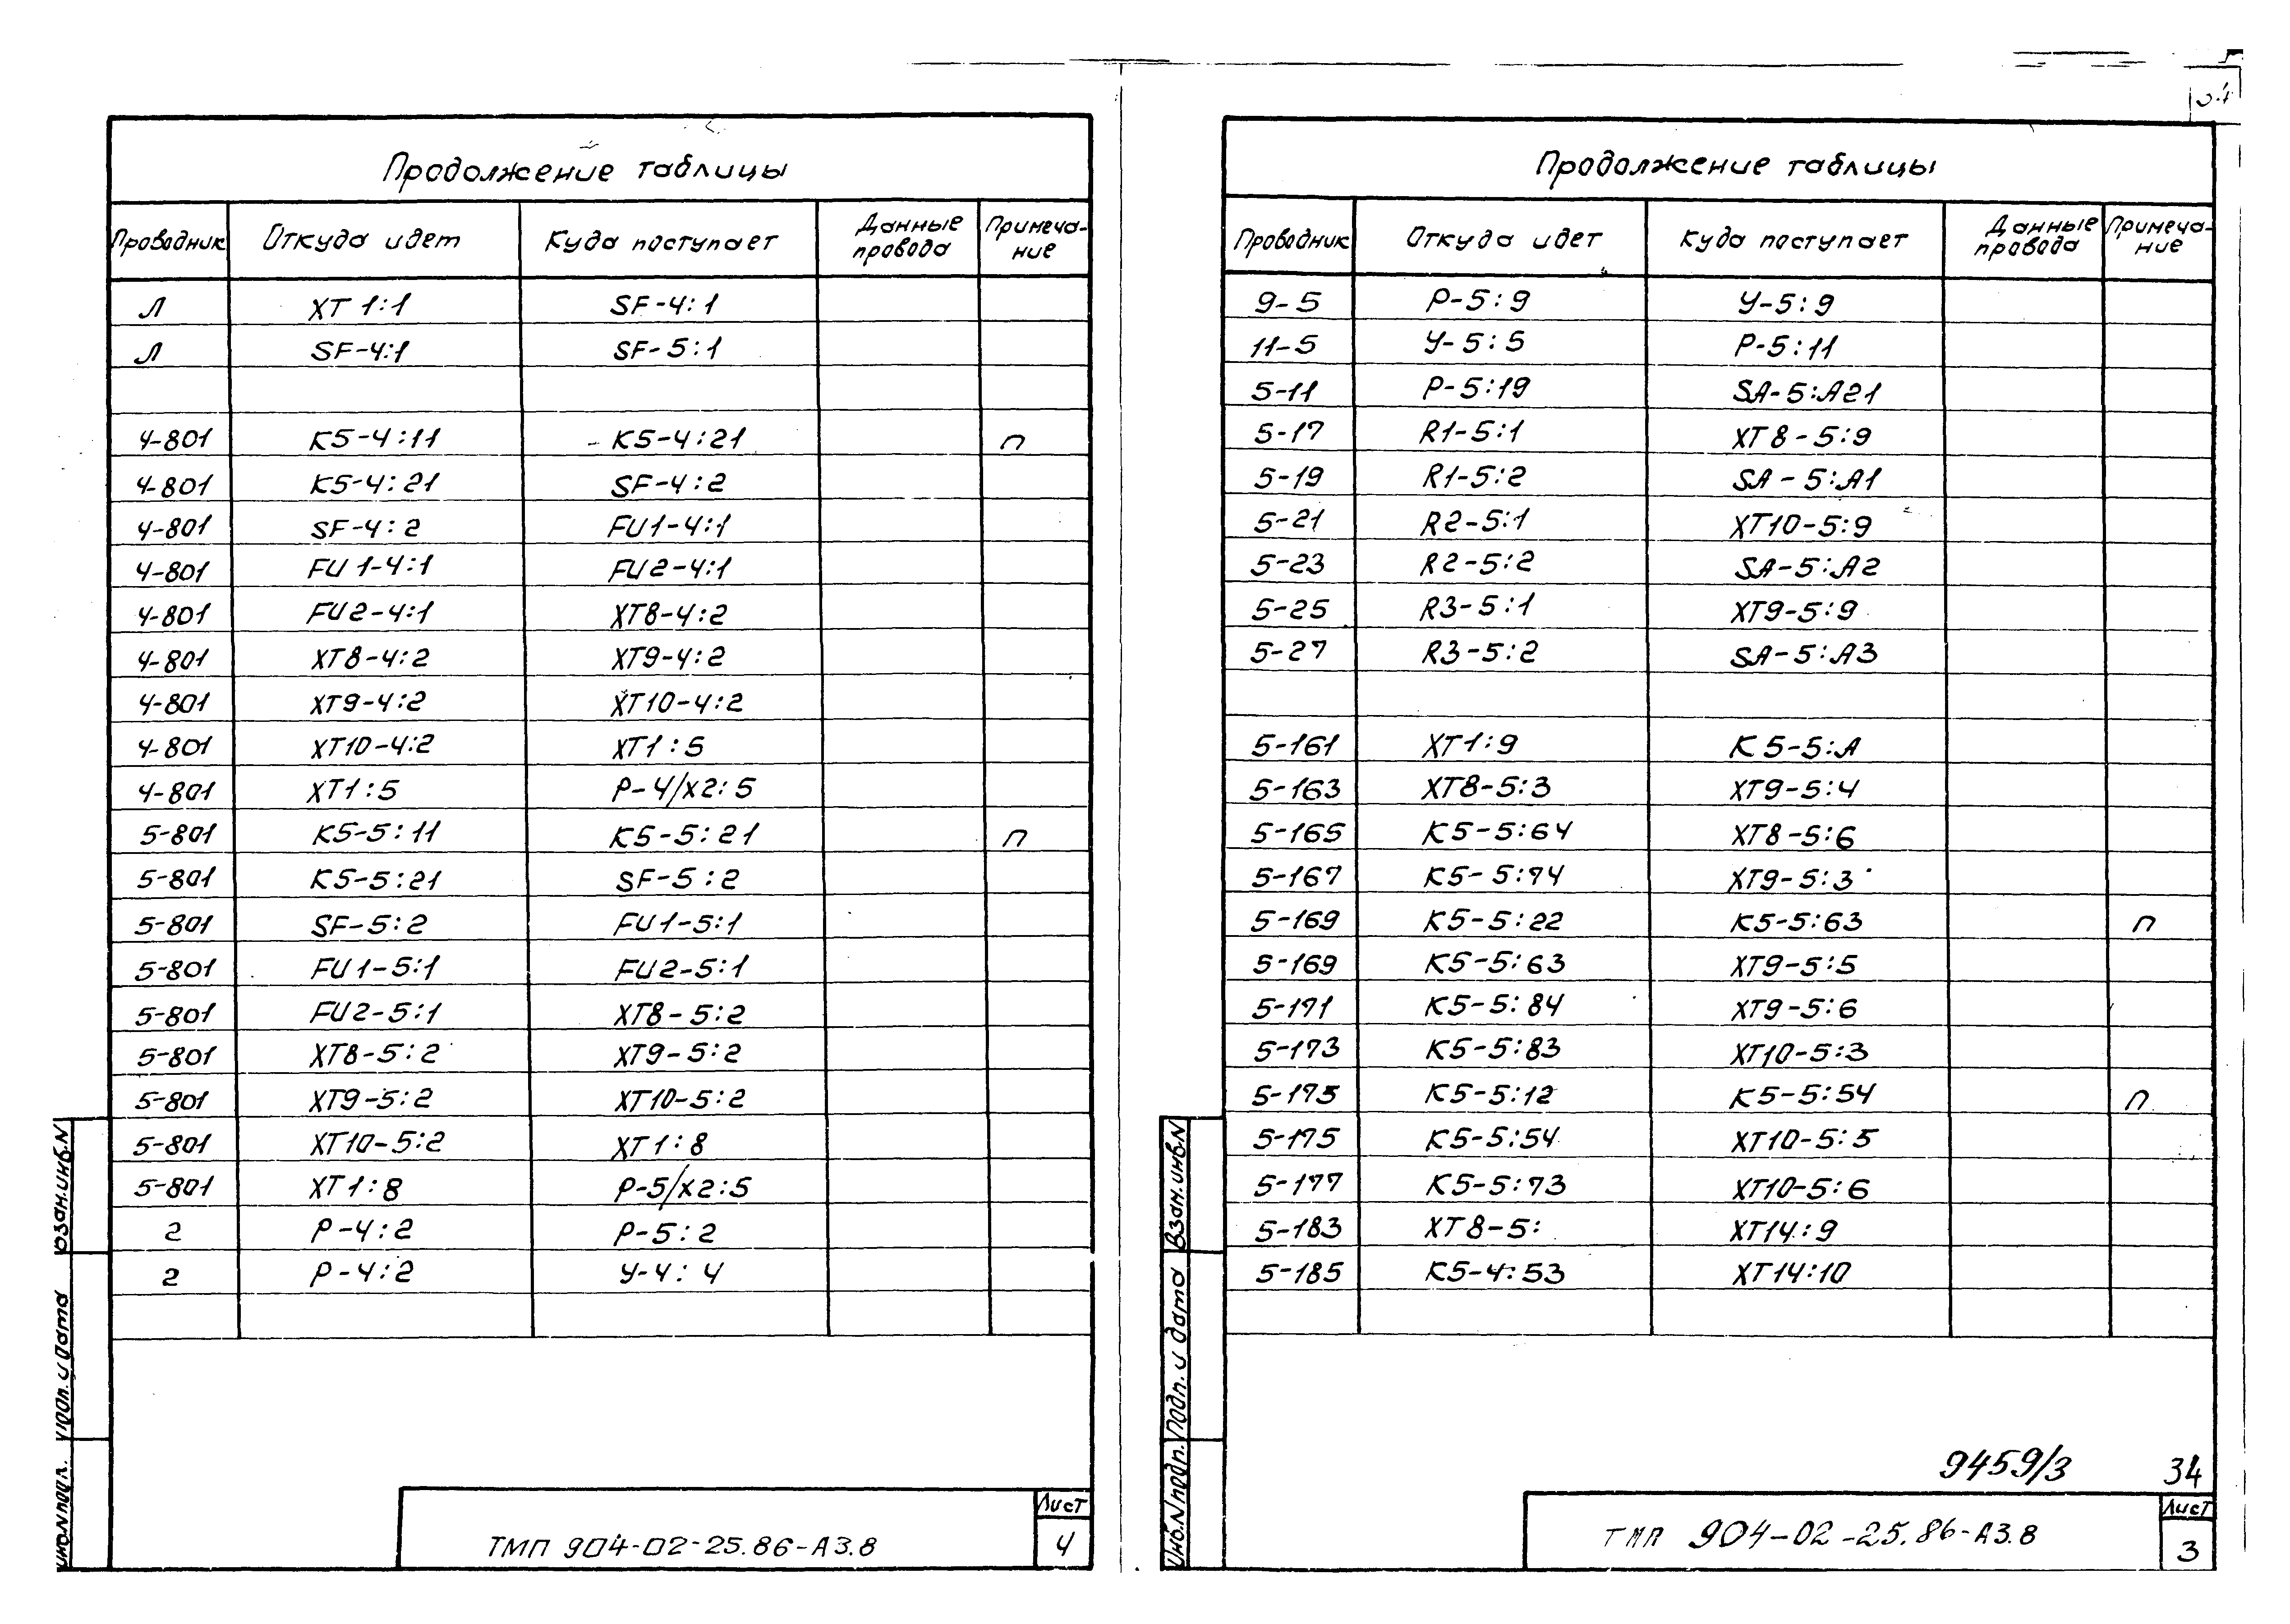 Продолжение таблицы
Проводник Откуда идет Куда поступает Данные провода Примечание
Л ХТ 1:1 SF-4:1
Л SF-4:1 SF-5:1
4-801 К5-4:11 К5-4:21 П
4-801 К5-4:21 SF-4:2
4-801 SF-4:2 FU1-4:1
4-801 FU1-4:1 FU2-4:1
4-801 FU2-4:1 ХТ8-4:2
4-801 ХТ8-4:2 ХТ9-4:2
4-801 ХТ9-4:2 ХТ10-4:2
4-801 ХТ10-4:2 ХТ1:5
4-801 ХТ1:5 Р-4/х2:5
5-801 К5-5:11 К5-5:21 П
5-801 К5-5:21 SF-5:2
5-801 SF-5:2 FU1-5:1
5-801 FU1-5:1 FU2-5:1
5-801 FU2-5:1 ХТ8-5:2
5-801 ХТ8-5:2 ХТ9-5:2
5-801 ХТ9-5:2 ХТ10-5:2
5-801 ХТ10-5:2 ХТ1:8
5-801 ХТ1:8 Р-5/х2:5
2 Р-4:2 Р-5:2
2 Р-4:2 У-4:4
Взам.инв.N
Подп. и дата
Инв.N подл.
ТМП 904-02-25.86-А3.8
Лист
4
Продолжение таблицы
Проводник Откуда идет Куда поступает Данные провода Примечание
9-5 Р-5:9 У-5:9
11-5 У-5:5 Р-5:11
5-11 Р-5:19 SA-5:А21
5-17 R1-5:1 ХТ8-5:9
5-19 R1-5:2 SA-5:А1
5-21 R2-5:1 ХТ10-5:9
5-23 R2-5:2 SA-5:А2
5-25 R3-5:1 ХТ9-5:9
5-27 R3-5:2 SA-5:А3
5-161 ХТ1:9 К5-5:А
5-163 ХТ8-5:3 ХТ9-5:4
5-165 К5-5:64 ХТ8-5:6
5-167 К5-5:74 ХТ9-5:3
5-169 К5-5:22 К5-5:63 П
5-169 К5-5:63 ХТ9-5:5
5-171 К5-5:84 ХТ9-5:6
5-173 К5-5:83 ХТ10-5:3
5-175 К5-5:12 К5-5:54 П
5-175 К5-5:54 ХТ10-5:5
5-177 К5-5:73 ХТ10-5:6
5-183 ХТ8-5: ХТ14:9
5-185 К5-4:53 ХТ14:10
Взам.инв.N
Подп. и дата
Инв.N подп.
9459/3 34
ТМП 904-02-25.86-А3.8
Лист
3